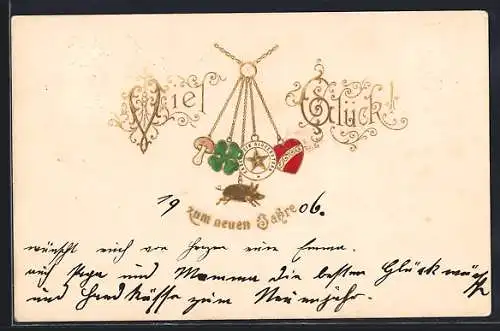 Viel Glück!
zum neuen Jahre
19 06.
wünscht euch von Herzen eure Emma.
auch Papa und Mamma die besten Glückwünsche
und Handküsse zum Neuenjahr.